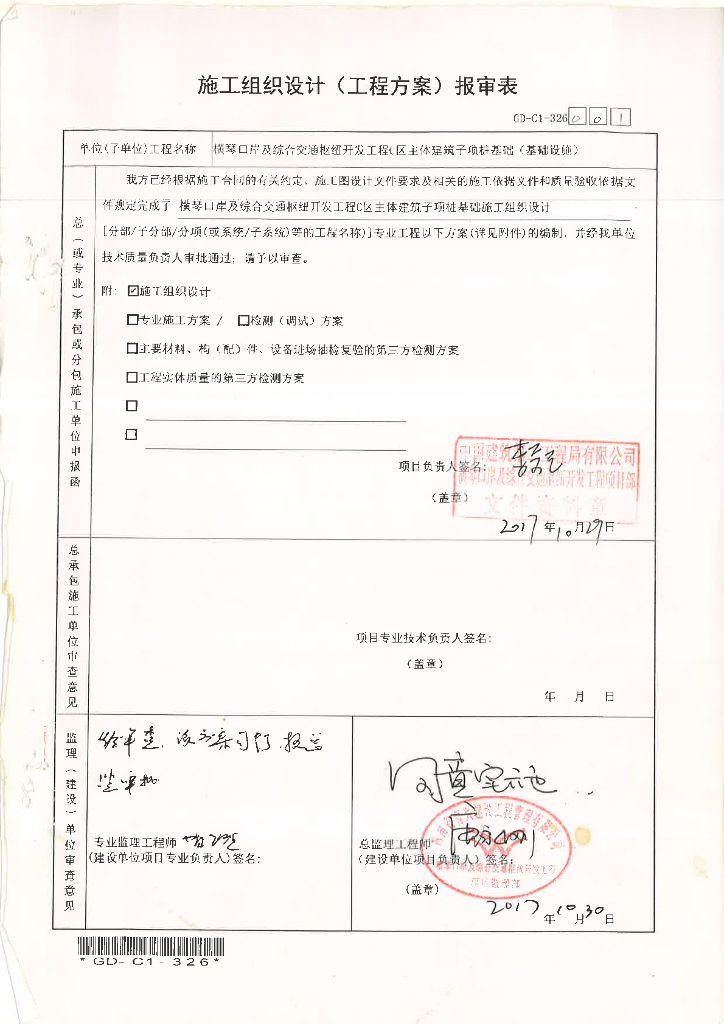 施工组织设计（工程方案）报审表
GD-C1-326 0 0 1
单位(子单位)工程名称 横琴口岸及综合交通枢纽开发工程C区主体建筑子项桩基础（基础设施）
总（或专业）承包或分包施工单位申报函
我方已经根据施工合同的有关约定、施工图设计文件要求及相关的施工依据文件和质量验收依据文
件规定完成了 横琴口岸及综合交通枢纽开发工程C区主体建筑子项桩基础施工组织设计
[分部/子分部/分项(或系统/子系统)等的工程名称)]专业工程以下方案(详见附件)的编制，并经我单位
技术质量负责人审批通过；请予以审查。
附：☑施工组织设计
□专业施工方案 / □检测（调试）方案
□主要材料、构（配）件、设备进场抽检复验的第三方检测方案
□工程实体质量的第三方检测方案
□
□
中国建筑 工程局有限公司
项目负责人签名：
横琴口岸及综合交通枢纽开发工程项目部
（盖章）
文件资料章
2017年10月29日
总承包施工单位审查意见
项目专业技术负责人签名：
（盖章）
年 月 日
监理（建设）单位审查意见
经审查，该方案可行，报总
监审批
专业监理工程师
(建设单位项目专业负责人)签名：
同意实施
建设工程管理有限公司
总监理工程师
（建设单位项目负责人）签名：
横琴口岸及综合交通枢纽开发工程
（盖章）
2017年10月30日
*GD-C1-326*